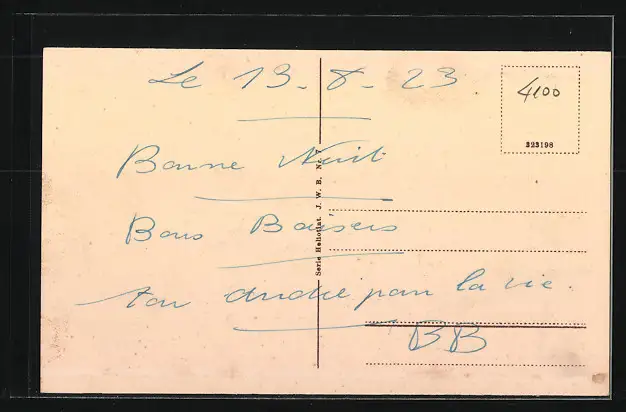 Le 13-8-23
4100
323198
Bonne Nuit
Bons Baisers
ton andré pour la vie.
BB
Serie Heliotint. J. W. B. Nr.